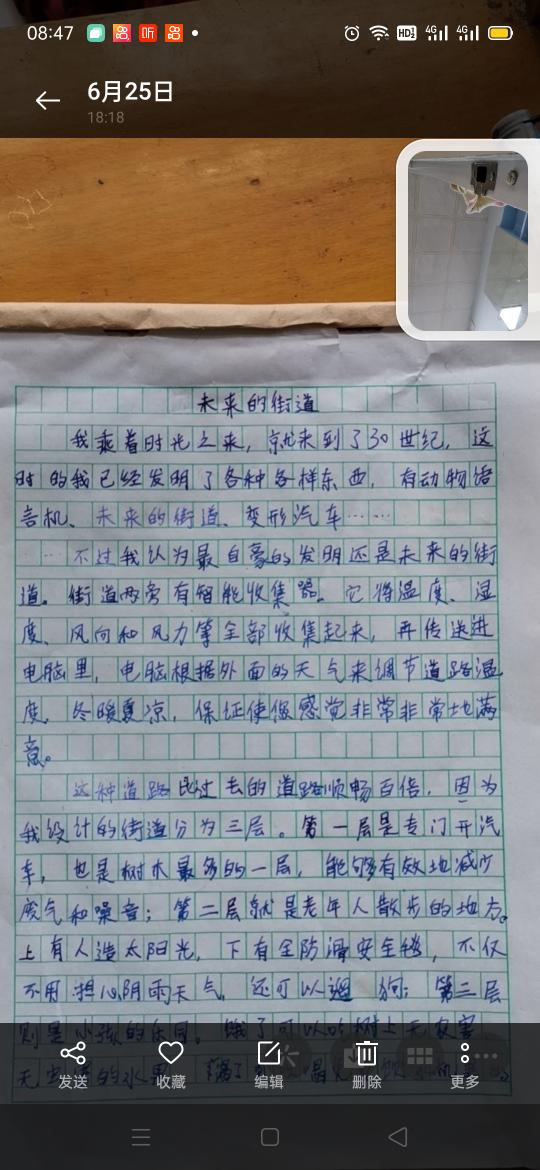 08:47
听
HD1
4G
4G
6月25日
18:18
未来的街道
我乘着时光之来,就来到了30世纪,这
时的我已经发明了各种各样东西,有动物语
言机、未来的街道、变形汽车……
不过我认为最自豪的发明还是未来的街
道。街道两旁有智能收集器。它将温度、湿
度、风向和风力等全部收集起来,再传送进
电脑里,电脑根据外面的天气来调节道路温
度,冬暖夏凉,保证使您感觉非常非常地满
意。
这种道路比过去的道路顺畅百倍,因为
我设计的街道分为三层。第一层是专门开汽
车,也是树木最多的一层,能够有效地减少
废气和噪音;第二层就是老年人散步的地方。
上有人造太阳光,下有全防滑安全,不仅
不用担心阴雨天气,还可以遛狗;第三层
则是小孩的乐园。饿了可以吃树上无农害
无虫的水果
发送
收藏
编辑
删除
更多